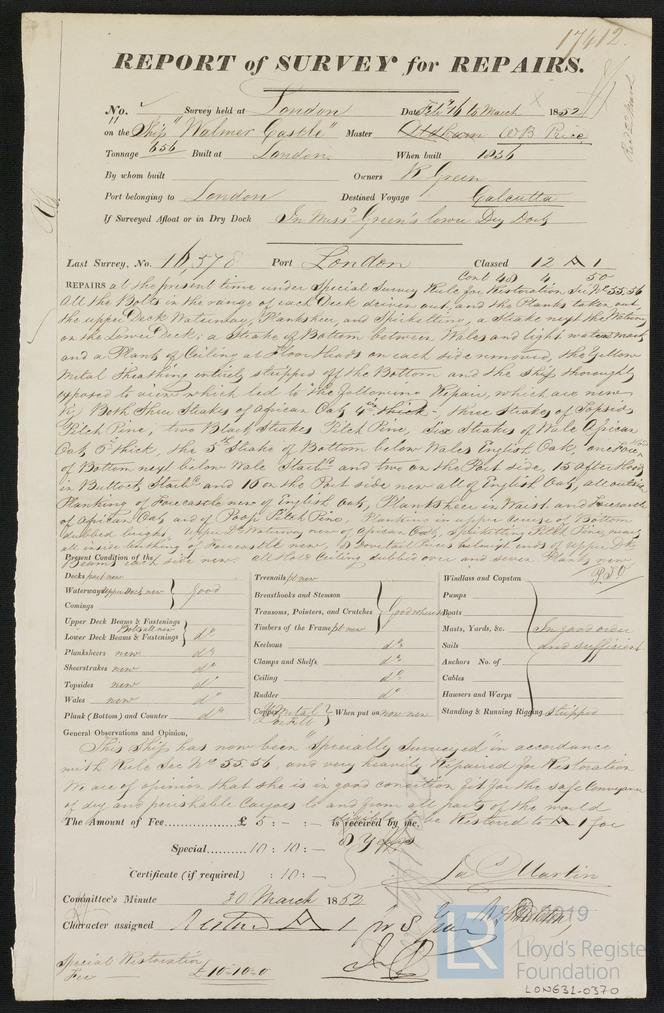 17412.
REPORT of SURVEY for REPAIRS.
No. Survey held at London Date Feby 16 to March 1852
on the Ship "Walmer Castle" Master W B Rice
Tonnage 656 Built at London When built 1836
By whom built Owners R Green
Port belonging to London Destined Voyage Calcutta
If Surveyed Afloat or in Dry Dock In Messrs Green's lower Dry Dock
Last Survey, No. 16,578 Port London Classed 12 A 1
Cont 48 4 50
REPAIRS at the present time under Special Survey Rule for Restoration Sec Nos 55.56
All the Bolts in the range of each Deck driven out, and the Planks taken out
the upper Deck Waterway, Plansheer, and Spirketting, a Strake next the Waterway
on the Lower Deck; a Strake of Bottom between Wales and light water mark
and a Plank of Ceiling at Floor Heads on each side removed, the Yellow
Metal Sheathing entirely stripped off the Bottom and the Ship thoroughly
exposed to view which led to the following Repair, which are new
Viz Both Shire Strakes of African Oak 4 ins thick, three Strakes of Topsides
Pitch Pine, two Black Strakes Pitch Pine, Six Strakes of Wale African
Oak 6 thick, the 5th Strake of Bottom below Wales English Oak, one
of Bottom next below Wale Starbd and two on the Port side, 15 After Hoods
in Buttock Starbd and 16 on the Port side new all of English Oak, all outside
Planking of Forecastle new of English Oak, Planksheer in Waist and Forecastle
of African Oak and of Poop Pitch Pine, Planking in upper course of Bottom
dubbed bright, upper Dk Waterway new of African Oak, Spirketting Pitch Pine, new
all inside Planking of Forecastle new, ends of upper Dk
Beams each side new. all Hold Ceiling dubbed over and seven Planks new
Present Condition of the
PTO
Decks part new
Waterways Upper Deck new } Good
Comings
Upper Deck Beams & Fastenings
Bolts all new
Lower Deck Beams & Fastenings } do
Planksheers new do
Sheerstrakes new do
Topsides new do
Wales new do
Plank (Bottom) and Counter do
Treenails pt new
Breasthooks and Stemson
Transoms, Pointers, and Crutches } Good
Timbers of the Frame pt new
Keelsons do
Clamps and Shelfs do
Ceiling do
Rudder do
Copper Y Metal } When put on now new
Windlass and Capstan
Pumps
Boats
Masts, Yards, &c. In good order
Sails and sufficient
Anchors No. of
Cables
Hawsers and Warps
Standing & Running Rigging stripped
General Observations and Opinion,
This Ship has now been "Specially Surveyed" in accordance
with Rule Sec Nos 55.56, and very heavily Repaired for Restoration
We are of opinion that she is in good condition fit for the safe Conveyance
of dry and perishable Cargoes to and from all parts of the world
The Amount of Fee £ 5 : - : - is received by me, to be Restored to A 1 for
8 Years
Special 10 : 10 : -
Certificate (if required) : 10 : -
Jas Martin
Committee's Minute 30 March 1852
Character assigned Restored A 1
Special Restoration
Fee £10-10-0
© 2019
LR
Lloyd's Register
Foundation
LON631-0370